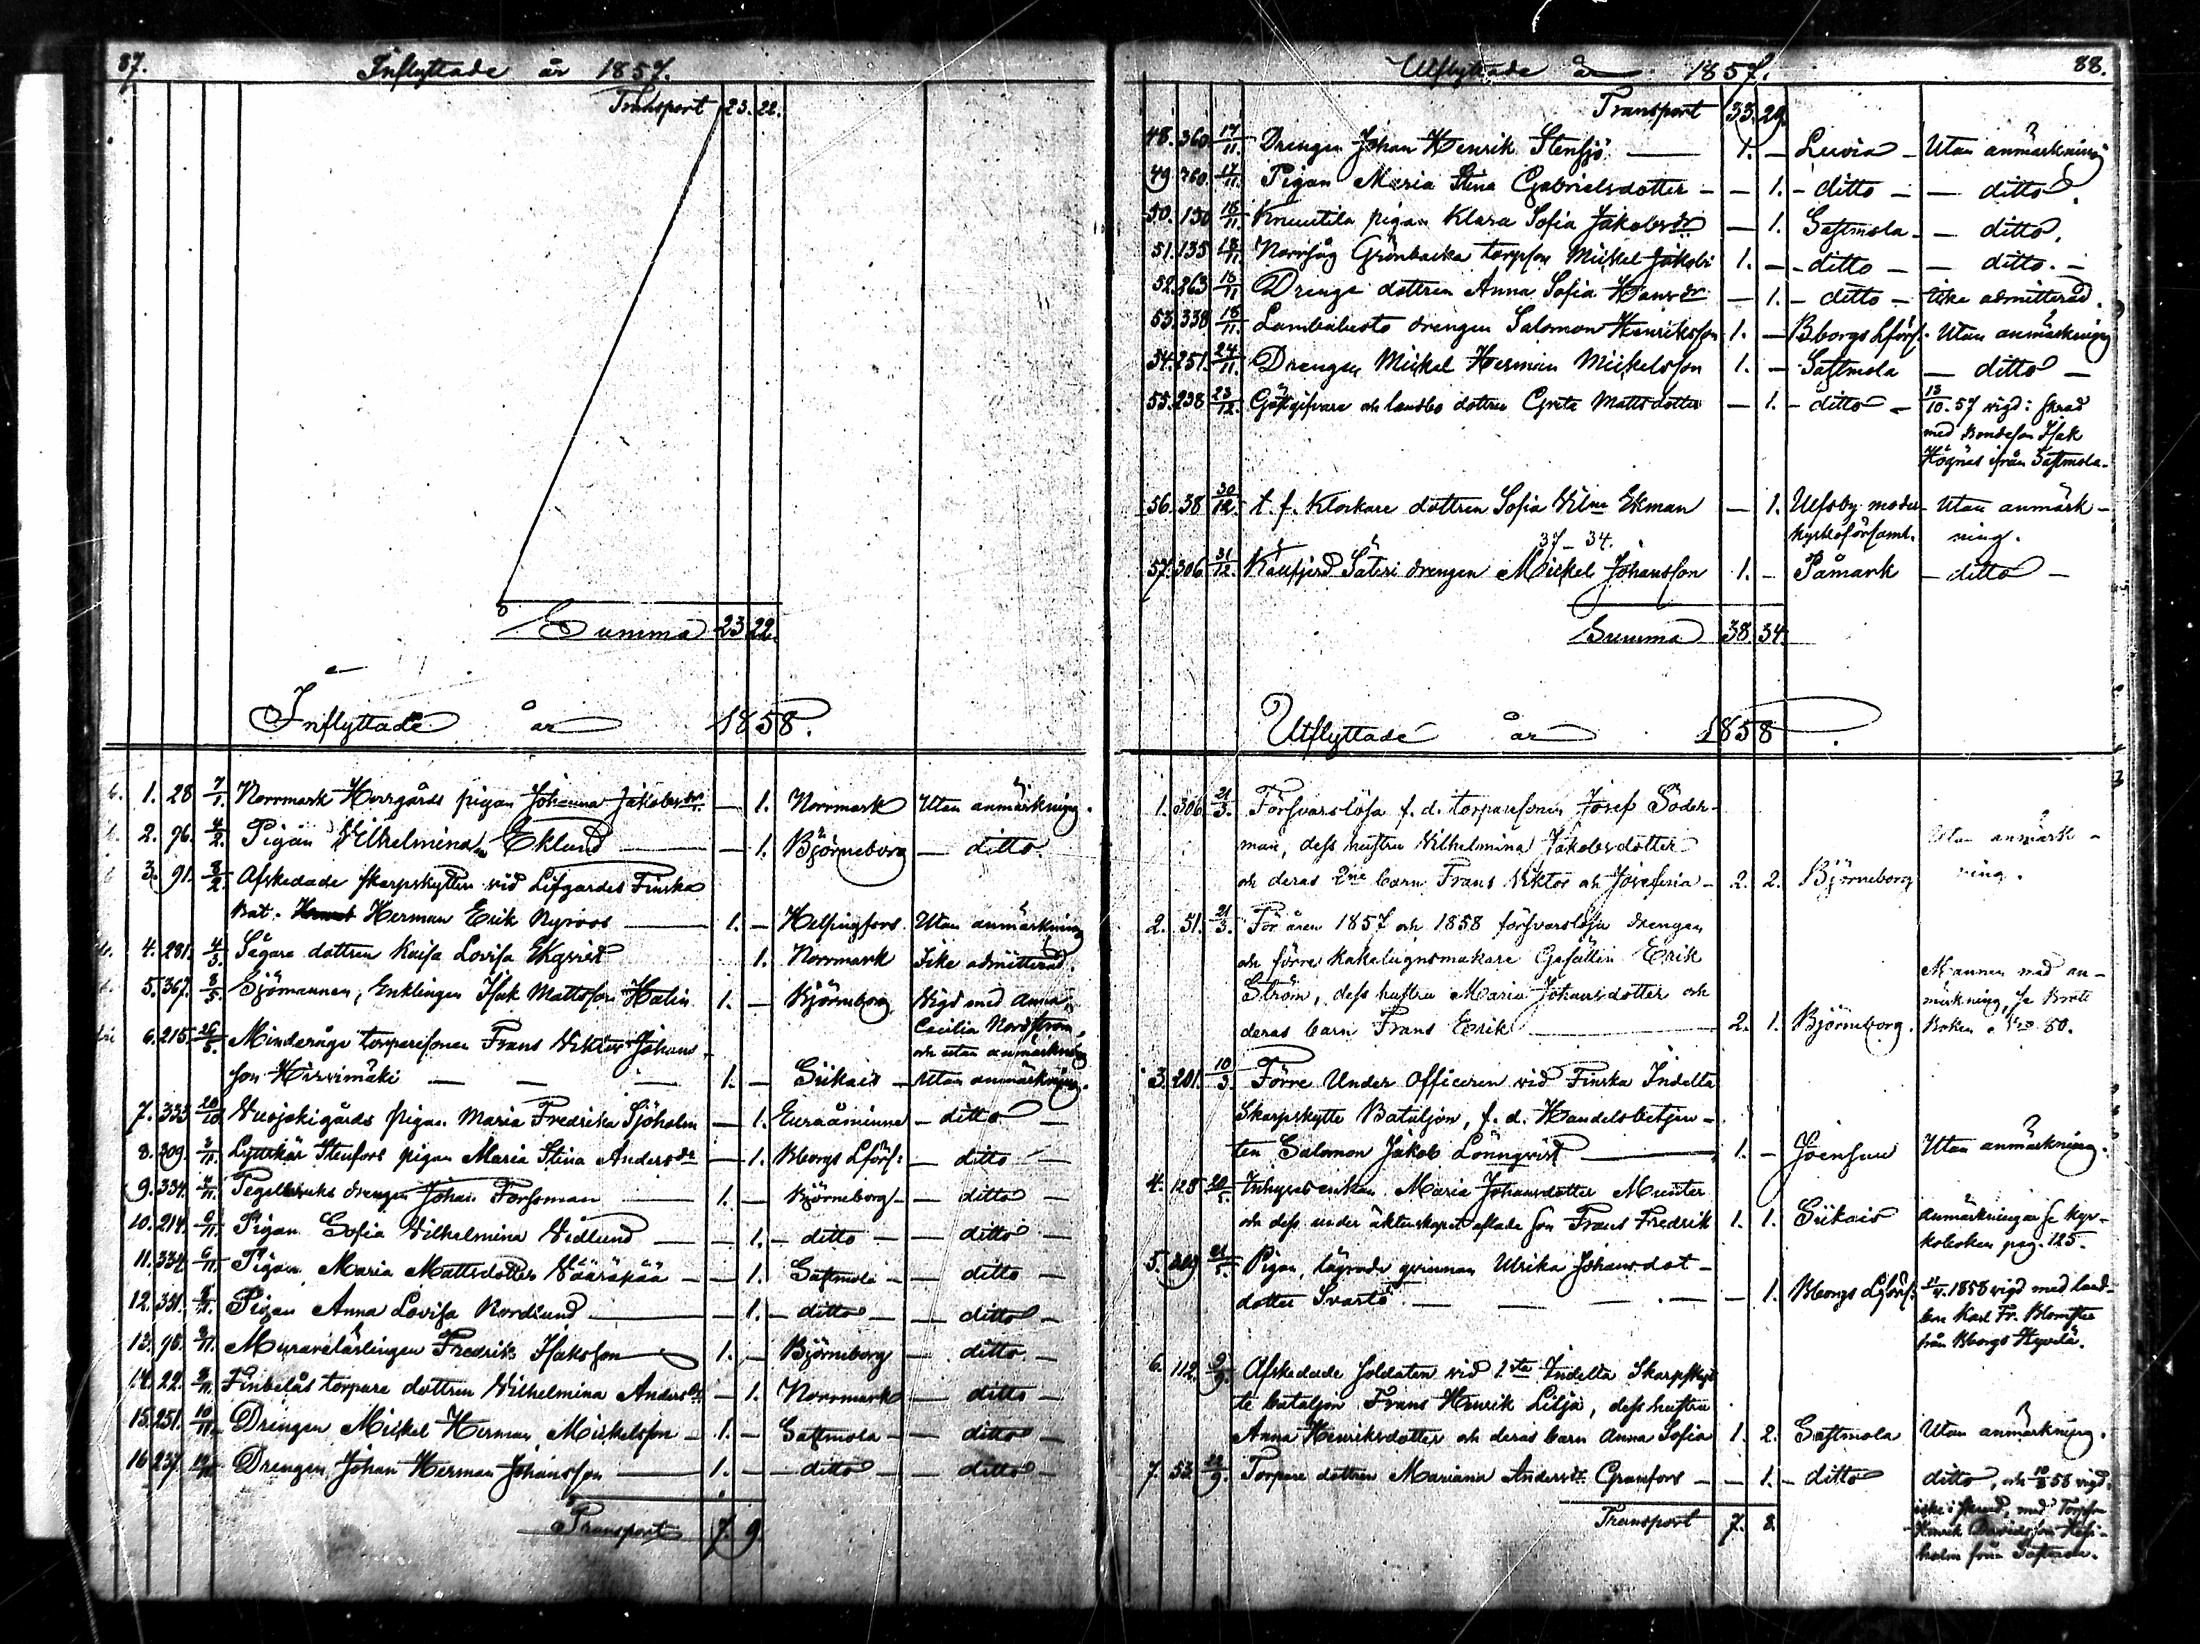 87. Inflyttade år 1857.
Transport 23. 22.
Summa 23. 22.
Inflyttade år 1858.
1. 28 7/1. Norrmark Herrgårds pigan Johanna Jakobsdr. — 1. Norrmark Utan anmärkning.
2. 96. 4/2. Pigan Vilhelmina Eklund — 1. Björneborg — ditto.
3. 91. 8/2. Afskedade skarpskytten vid Lifgardes Finska
Bat. Herman Erik Nyroos 1. — Helsingfors. Utan anmärkning
4. 281. 4/5. Sågare dottren Kaisa Lovisa Ekqvist 1. Norrmark Icke admitterad.
5. 367. 8/5. Sjömannen, Enklingen Isak Mattsson Halin 1. — Björneborg. Vigd med Anna
Cecilia Nordström,
och utan anmärkning
6. 215. 26/5. Minderåge torparesonen Frans Viktor Johans-
son Hirvimäki — — — 1. — Siikais — Utan anmärkning.
7. 333 20/10 pigan Maria Fredrika Sjöholm — 1. Euraåminne — ditto —
8. 309. 3/11. Lyttskär Stenfors pigan Maria Stina Andersdr — 1. Bborgs Lförs: — ditto —
9. 334. 4/11. Tegelbruks drengen Johan Forsman 1. — Björneborg — — ditto —
10. 214. 6/11. Pigan Sofia Vilhelmina Vidlund — — 1. — ditto — — ditto —
11. 334. 6/11. Pigan Maria Mattsdotter Vääräpää — — 1. Sastmola — — ditto —
12. 331. 8/11. Pigan Anna Lovisa Nordlund — 1. — ditto — — ditto —
13. 98. 9/11. Murarelärlingen Fredrik Isaksson 1. — Björneborg — ditto. —
14. 22. 9/11. Finbelås torpare dottren Vilhelmina Andersdr — 1. Norrmark — ditto —
15. 251. 10/11. Drengen Mickel Herman Mickelsson — 1. — Sastmola — — ditto —
16 237. Drengen Johan Herman Johansson 1. — — ditto — — ditto —
Transport 7. 9.
Utflyttade år 1857. 88.
Transport 33. 29.
48. 360 17/11. Drengen Johan Henrik Stensjö 1. — Luvia — Utan anmärkning
49 760. 17/11. Pigan Maria Stina Gabrielsdotter — — 1. — ditto — — ditto.
50. 130 18/11. Knuutila pigan Klara Sofia Jakobsdr — 1. Sastmola — — ditto.
51. 135 18/11. Norrfåg Grönbacka torpson Mickel Jakobs 1. — — ditto — — ditto. —
52. 263 18/11 Drenge dottren Anna Sofia Hansdr — 1. — ditto — Icke admitterad.
53. 338 18/11. Lambabusto drengen Salomon Henriksson 1. — Bborgs Lförs. Utan anmärkning
54. 251. 24/11. Drengen Mickel Herman Mickelsson 1. — Sastmola — ditto —
55. 238 23/12. Gästgifvare och landbo dottren Greta Mattsdotter — 1. — ditto — 13/10. 57 vigd i skrud
med Bondeson Isak
Högnäs ifrån Sastmola.
56. 38 30/12. t. f. Klockare dottren Sofia Vilma Ekman — 1. Ulfsby moder- Utan anmärk-
kyrkoförsaml. ning.
37 — 34.
57. 306 31/12. Käufjerd Säteri drengen Mickel Johansson 1. — Påmark — ditto —
Summa 38. 34.
Utflyttade år 1858.
1. 306 21/3. Försvarslösa f. d. torparesonen Josef Söder-
man, dess hustru Vilhelmina Jakobsdotter Utan anmärk-
och deras 2ne barn Frans Viktor och Josefina — 2. 2. Björneborg ning.
2. 51. 21/3. För åren 1857 och 1858 försvarslösa drengen
och förre kakelugnsmakare Gesällen Erik
Ström, dess hustru Maria Johansdotter och Mannen med an-
märkning, se Brott
deras barn Frans Erik 2. 1. Björneborg. Boken No 80.
3. 201. 10/3. Förre Under Officeren vid Finska Indelta
Skarpskytte Bataljon, f. d. Handelsbetjen-
ten Salomon Jakob Lönnqvist 1. — Joensuu Utan anmärkning.
4. 128 20/5. Inhyseenkan Maria Johansdotter Munter
och dess under äktenskapet aflade son Frans Fredrik 1. 1. Siikais Anmärkningar se kyr-
koboken pag. 125.
5. 309 21/5. Pigan, lägrade qvinnan Ulrika Johansdot-
dotter Svartö — — — 1. Bborgs Lförs: 1858 vigd med land-
bon Karl Fr. Blomster
från Bborgs Hyvelä.
6. 112. 9/9. Afskedade soldaten vid 1sta Indelta Skarpskyt
te bataljon Frans Henrik Lilja, dess hustru
Anna Henriksdotter och deras barn Anna Sofia 1. 2. Sastmola Utan anmärkning.
7. 53. 12/9. Torpare dottren Mariana Andersdr. Granfors — — 1. — ditto ditto, och 58 vigd,
icke i skrud, med Torpson
Henrik Davidsson
från Sastmola.
Transport 7. 8.